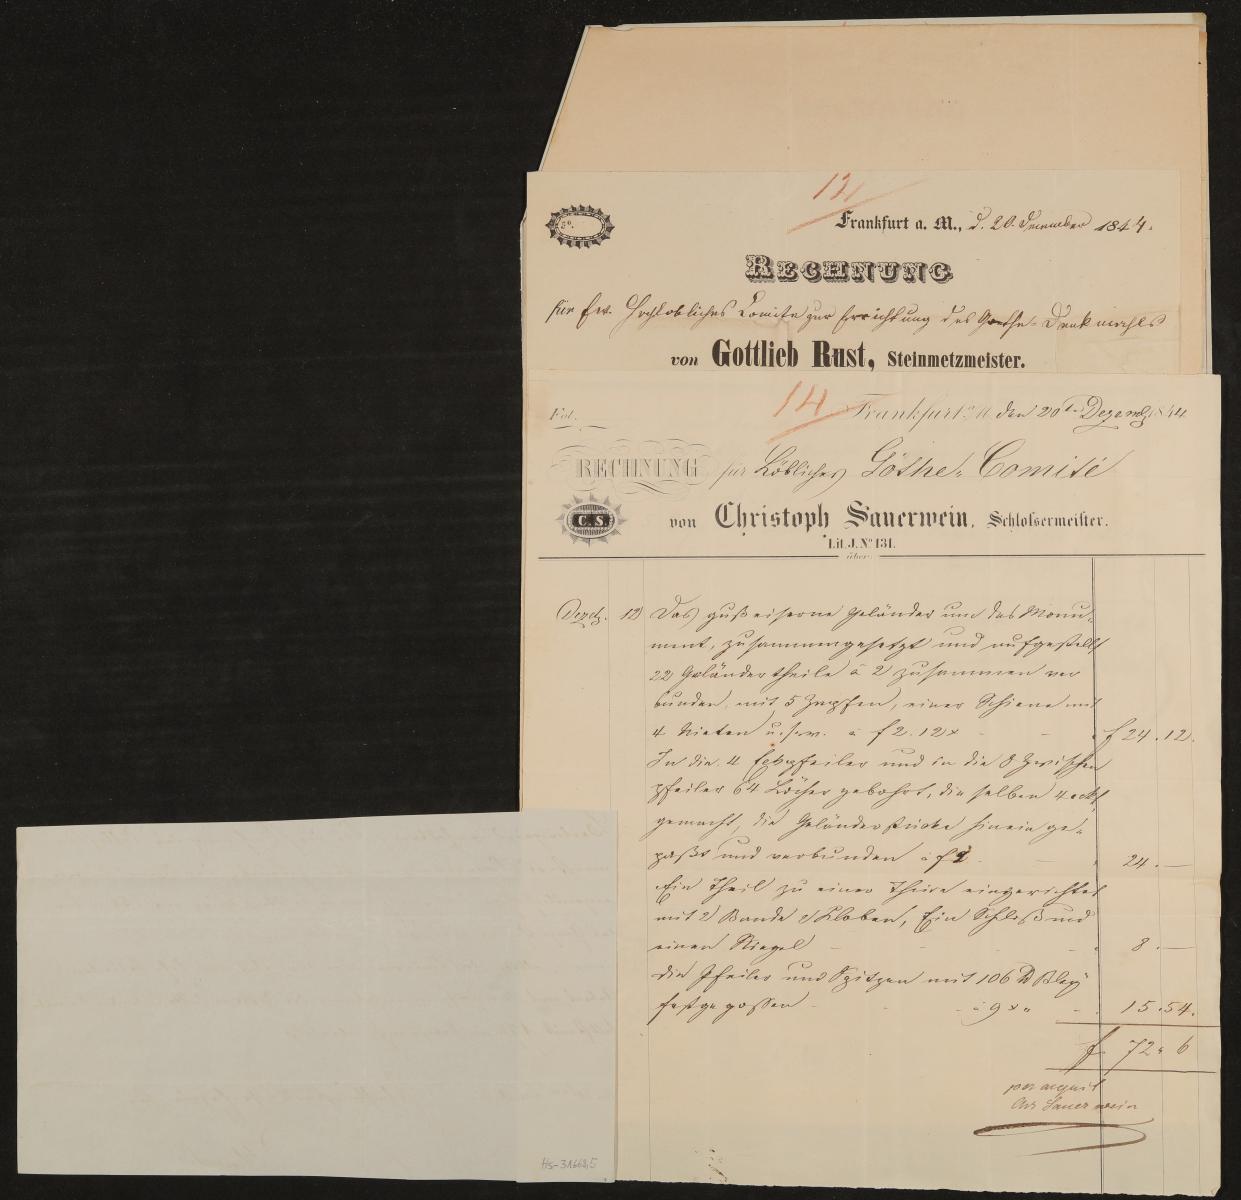 12
Frankfurt a. M., d. 20. Dezember 1844.
Fo.
RECHNUNG
für Ew. Hochlöbliches Comite zur Errichtung des Goethe-Denkmahls
von Gottlieb Rust, Steinmetzmeister.
14
Fol. Frankfurt a/M den 20t Dezemb 1844
RECHNUNG für Löbliches Göthe-Comité
C. S. von Christoph Sauerwein, Schlossermeister.
Lit. J. No 131.
über:
Dezb. 12 Das gußeiserne Geländer um das Monu-
ment, zusammengesetzt und aufgestellt
22 Geländertheile à 2 zusammen ver
bunden, mit 5 Zapfen, einer Schiene mit
4 Nieten u.s.w. à f 2.12x f 24.12.
In die 4 Eckpfeiler und in die 8 Zwischen
pfeiler 64 Löcher gebohrt, die selben 4 eckt
gemacht, die Geländerstücke hinein ge-
paßt und verbunden à f 24.—
Ein Theil zu einer Thüre eingerichtet
mit 2 Bande 2 Kloben, Ein Schloß und
einen Riegel 8.—
die Pfeiler und Spitzen mit 106 ℔ Bley
festgegossen à 9x 15.54.
f 72.6
per acquit
Chr Sauerwein
Hs-31668,5